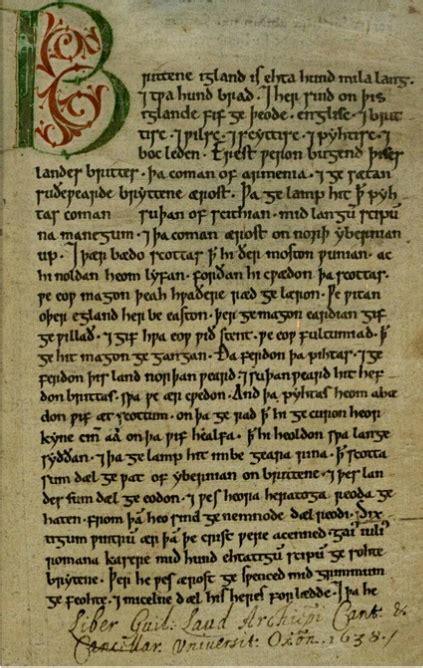 Brittene igland is ehta hund mila lang.
⁊ tpa hund brad. ⁊ her sind on þis
iglande fif ge þeode. englisc. ⁊ brit
tisc. ⁊ pilsc. ⁊ scyttisc. ⁊ pyhtisc. ⁊
boc leden. Erest peron bugend þises
landes brittes. þa coman of armenia. ⁊ ge sætan
suðepearde bryttene ærost. Þa ge lamp hit þ̄ pyh
tas coman suþan of scithian. mid langū scipū
na manegum. ⁊ þa coman ærost on norþ ybernian
up. ⁊ þær bædo scottas þ̄ hi ðer moston punian. ac
hi noldan heom lyfan. forðan hi cpædon þa scottas.
pe eop magon þeah hpaðere ræd ge læron. Pe pitan
oþer egland her be easton. þer ge magon eardian gif
ge pillað. ⁊ gif hpa eop pið stent. pe eop fultumiað. þ̄
ge hit magon ge gangan. Ða ferdon þa pihtas. ⁊ ge
ferdon þis land norþan peard. ⁊ suþan peard hit hef
don brittas. spa pe ær cpedon. And þa pyhtas heom aba
don pif æt scottum. on þa ge rad þ̄ hi ge curon heor
kyne cin̄ aa on þa pif healfa. þ̄ hi heoldon spa lange
syððan. ⁊ þa ge lamp hit imbe geara rina. þ̄ scotta
sum dæl ge pat of ybernian on brittene. ⁊ þes lan
des sum dæl ge eodon. ⁊ pes heora heratoga reoda ge
haten. from þā heo sind ge nemnode dæl reodi. Six
tigum pintrū ær þā þe crist pere acenned. gai' iuli'
romana kasere mid hund ehtatigū scipū ge sohte
brytene. Þer he pes ærost ge spenced mid grimmum
ge feohte. ⁊ micelne dæl his heres for lædde. ⁊ þa he
Liber Guil: Laud Archiepi Cant. &
Cancellar. Universit: Oxōn. 1638.